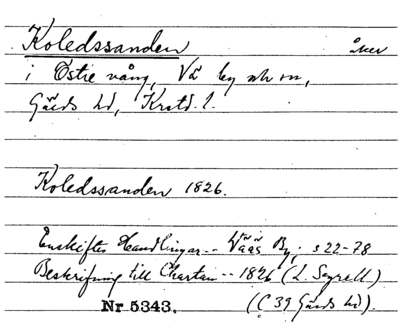 Koledssanden åker
i Östre vång, Vä by och sn,
Gärds hd, Krstd. l.
Koledssanden 1826.
Enskiftes Handlingar -- Wääs By, s 22-78
Beskrifning till Chartan -- 1826 (L. Seyrell)
Nr 5343. (C 39 Gärds hd).